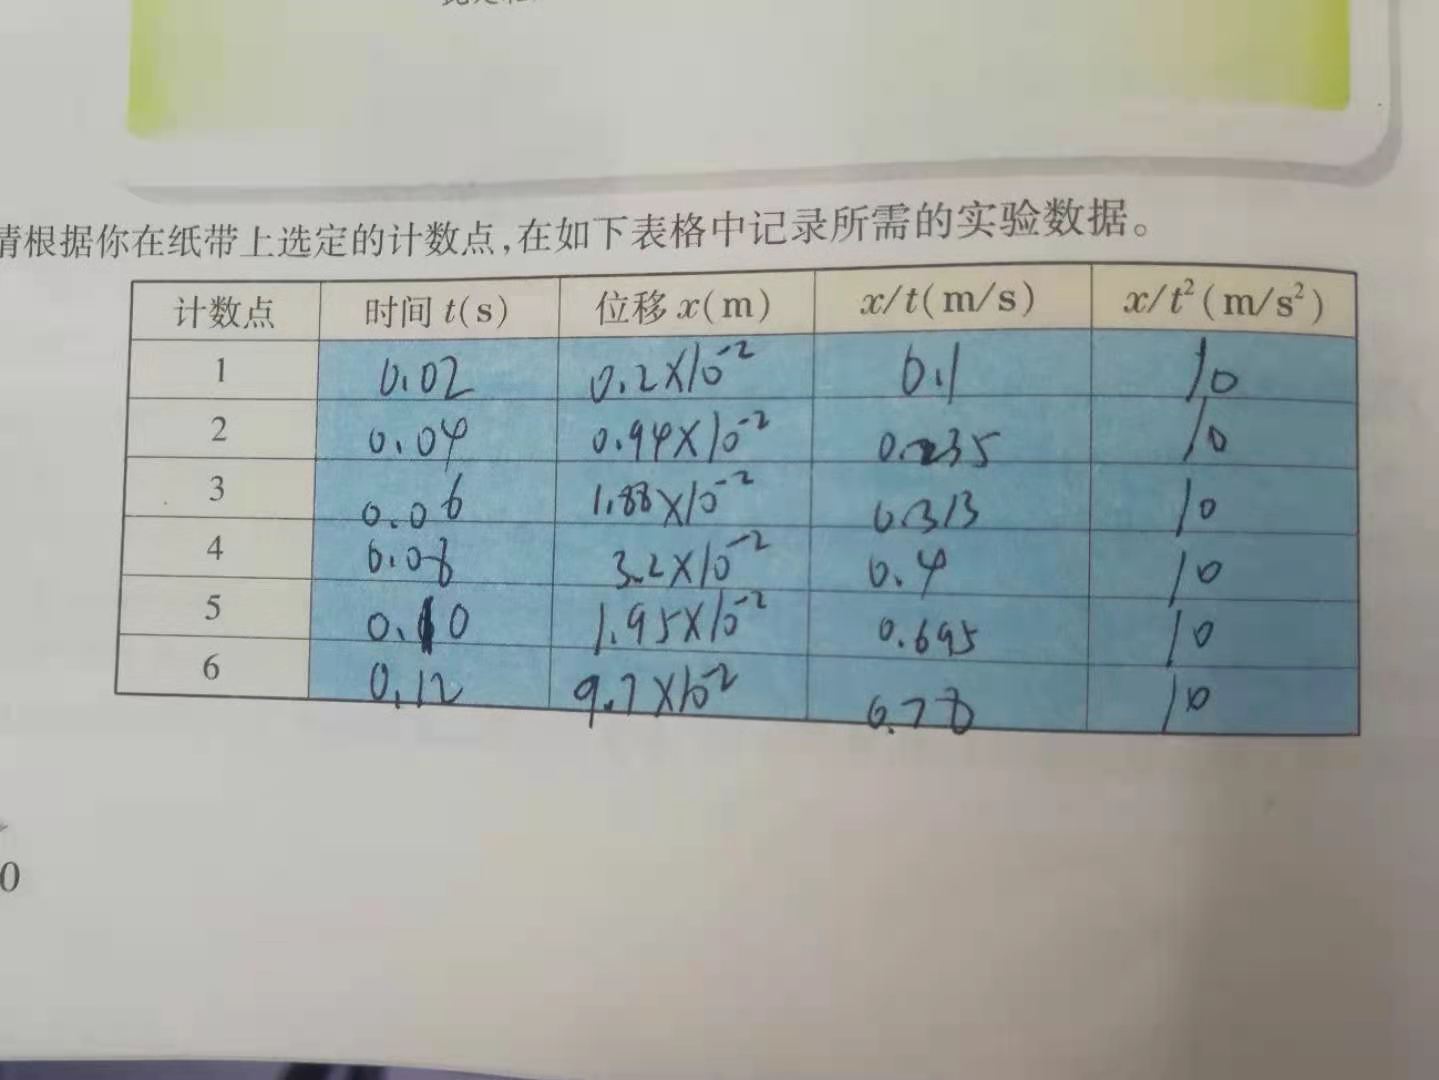 请根据你在纸带上选定的计数点,在如下表格中记录所需的实验数据。
计数点 时间 t(s) 位移 x(m) x/t(m/s) x/t²(m/s²)
1 0.02 0.2×10⁻² 0.1 10
2 0.04 0.94×10⁻² 0.235 10
3 0.06 1.88×10⁻² 0.313 10
4 0.08 3.2×10⁻² 0.4 10
5 0.10 1.95×10⁻² 0.695 10
6 0.12 9.7×10⁻² 0.78 10
0